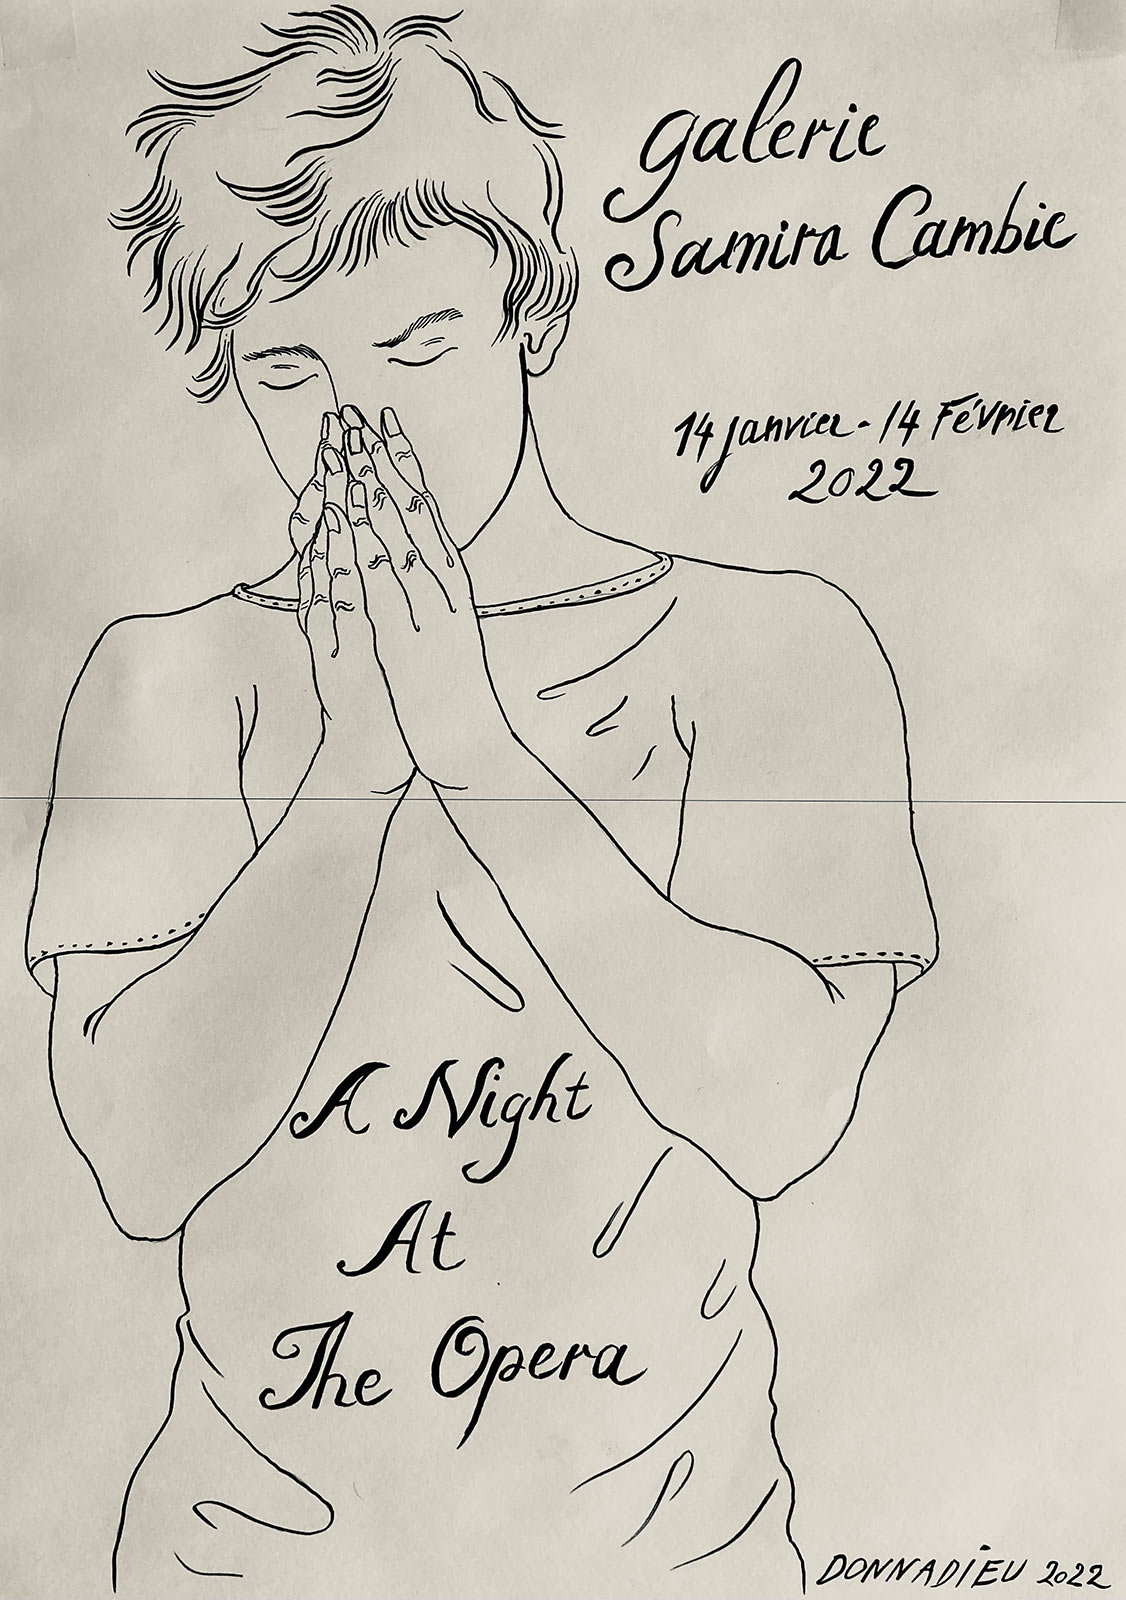 galerie
Samira Cambie
14 janvier - 14 Février
2022
A Night
At
The Opera
DONNADIEU 2022